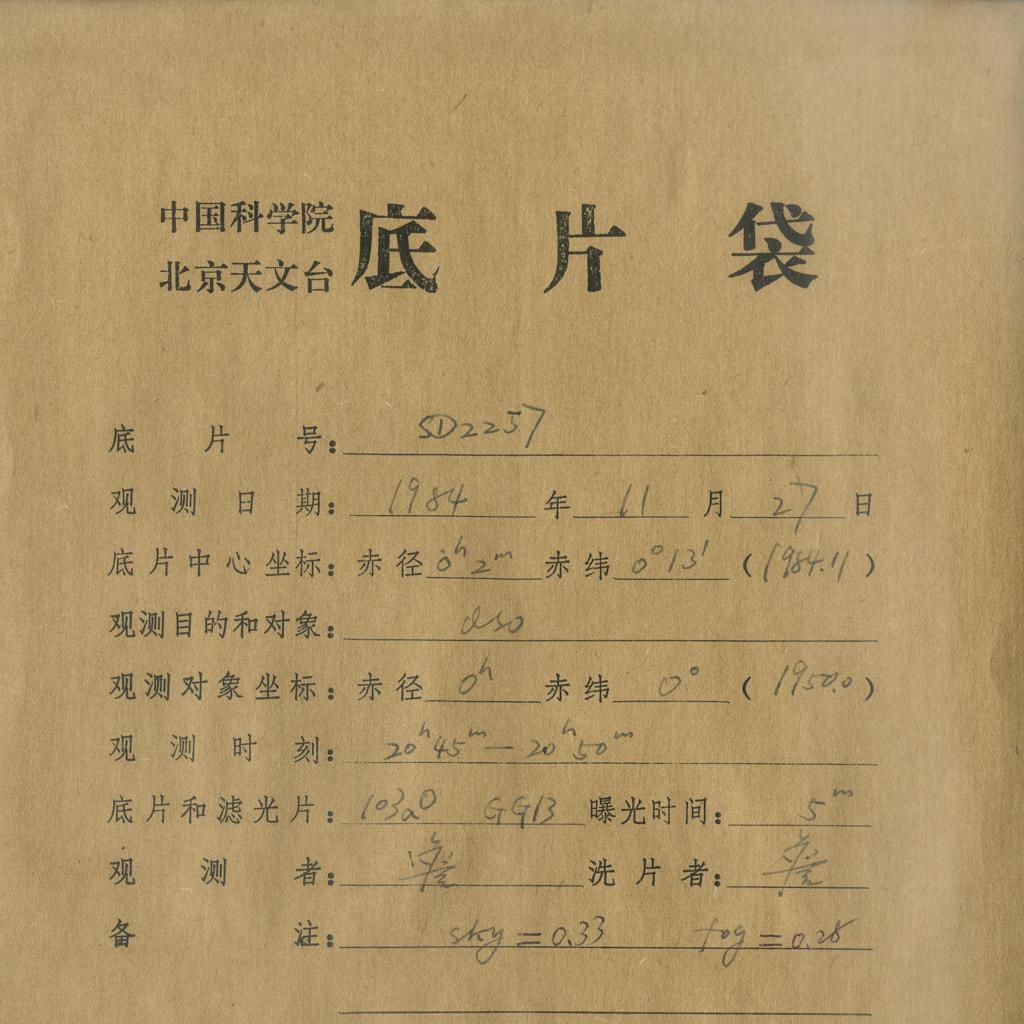 中国科学院
北京天文台
底片袋
底片号: SD2257
观测日期: 1984 年 11 月 27 日
底片中心坐标: 赤径 0h 2m 赤纬 0°13' (1984.11)
观测目的和对象: QSO
观测对象坐标: 赤径 0h 赤纬 0° (1950.0)
观测时刻: 20h45m — 20h50m
底片和滤光片: 103aO GG13 曝光时间: 5m
观测者: 洗片者:
备注: sky = 0.33 fog = 0.28